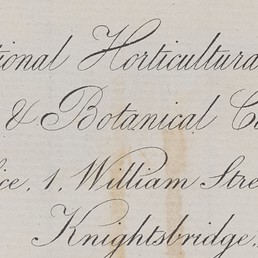 tional Horticultura
& Botanical C
ice, 1, William Stre
Knightsbridge.